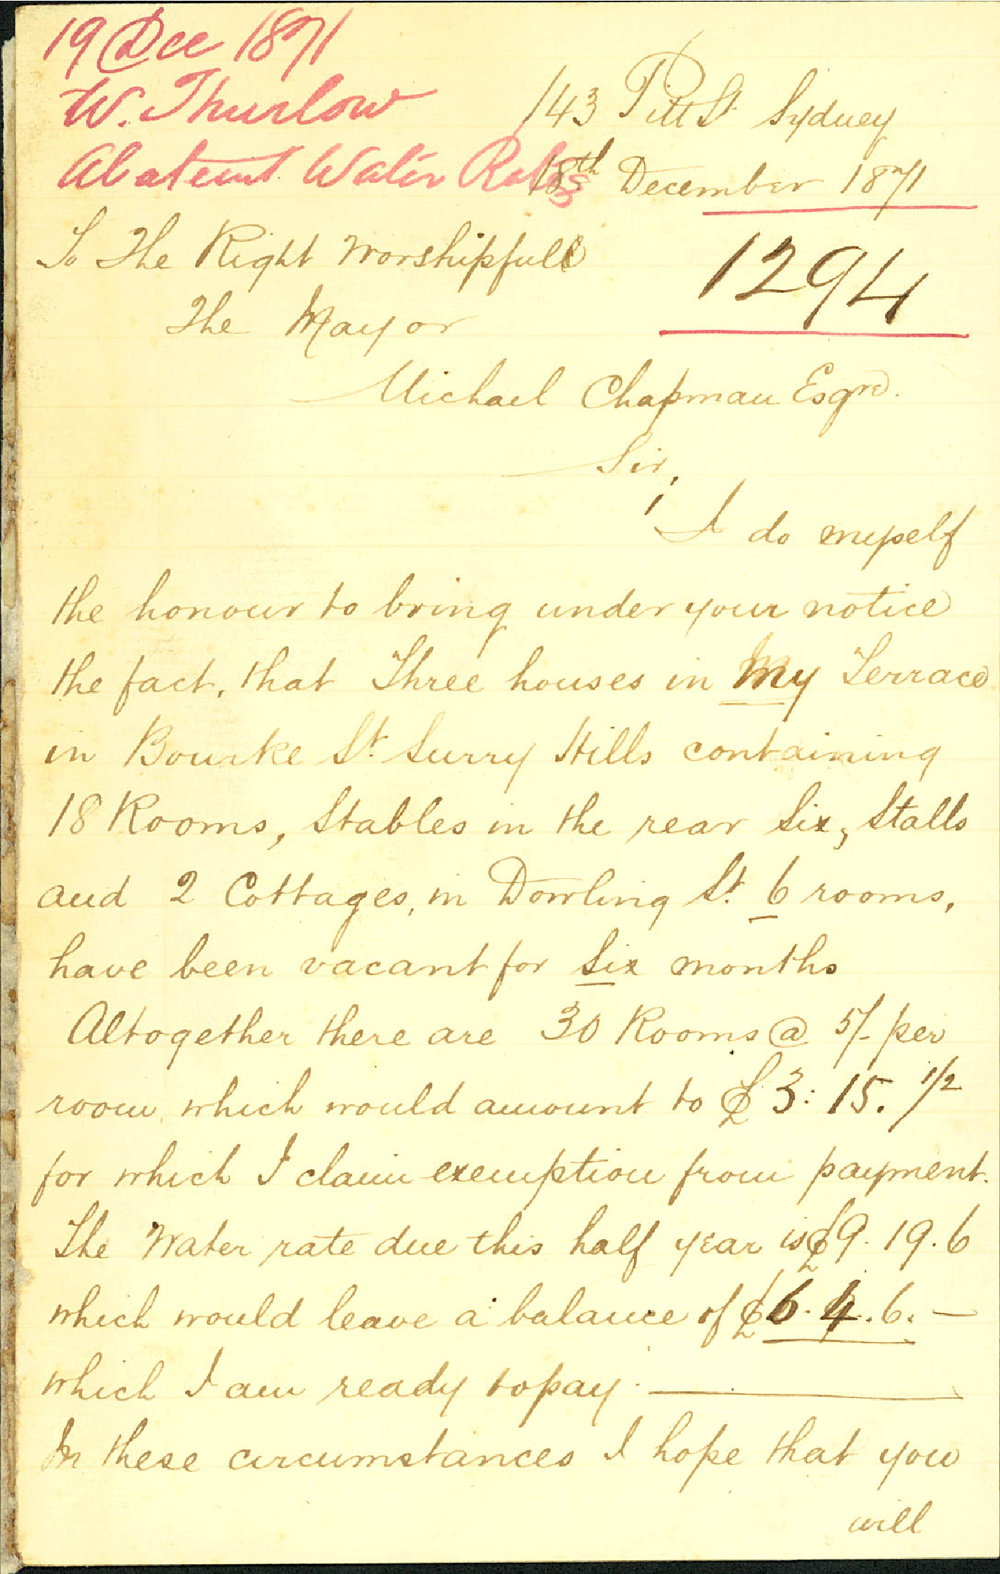 19 Dec 1871
W. Thurlow
Abatemt Water Rates
143 Pitt St Sydney
18th December 1871
1294
To The Right Worshipfull
The Mayor
Michael Chapman Esqre.
Sir,
I do myself
the honour to bring under your notice
the fact, that Three houses in My Terrace
in Bourke St. Surry Hills containing
18 Rooms, Stables in the rear Six, Stalls
and 2 Cottages, in Dowling St. 6 rooms,
have been vacant for Six months
Altogether there are 30 Rooms @ 5/- per
room, which would amount to £3: 15. 1/2
for which I claim exemption from payment.
The Water rate due this half year is £9. 19. 6
which would leave a balance of £6. 4. 6. —
which I am ready to pay. —
In these circumstances I hope that you
will